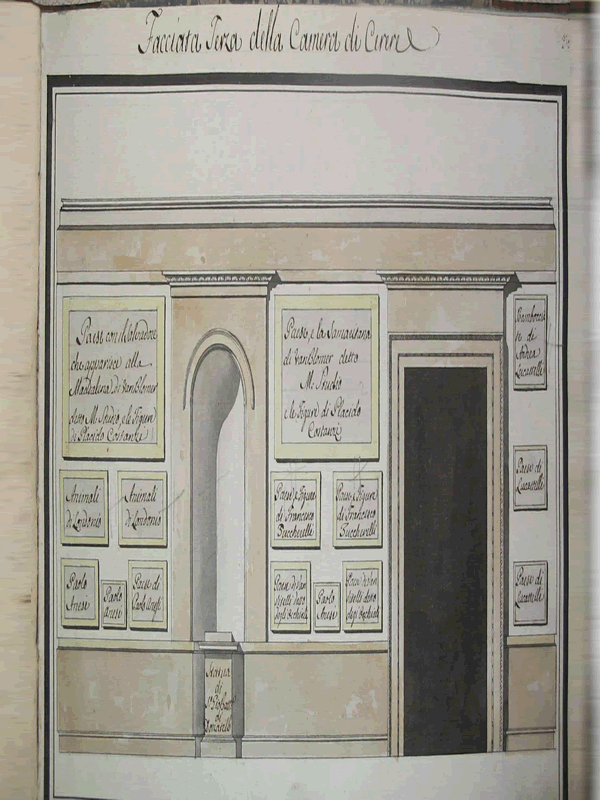 Facciata Terza della Camera di
Paese con il Salvatore
che apparisce alla
Maddalena di VanBlomen
detto M. Studio, e le Figure
di Placido Costanzi
Paese, e la Samaritana
di VanBlomer detto
M. Studio
e le Figure di Placido
Costanzi
di
Andrea
Locatelli
Animali
di Londonio
Animali
di Londonio
Paesi, e Figure
di Francesco
Zuccherelli
Paesi, e Figure
di Francesco
Zuccherelli
Paese di
Locatelli
Paolo
Anesi
Paolo
Anesi
Paese di
Paolo Anesi
Paese di Van
detto
degli Occhiali
Paolo
Anesi
Paese di Van
detto
degli Occhiali
Paese di
Locatelli
Statua
di